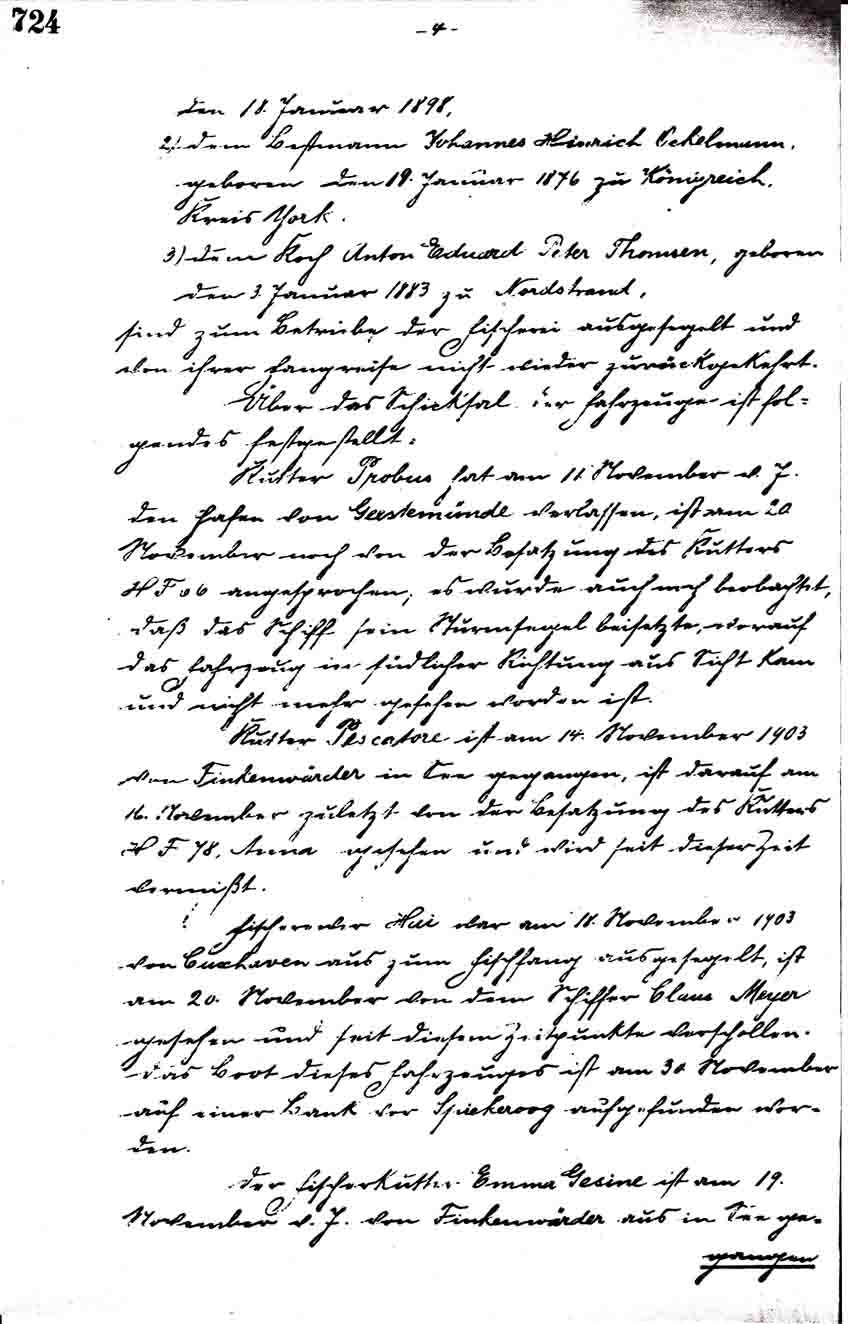 724
- 4 -
den 18. Januar 1898,
2.) dem Bestmann Johannes Hinrich Ockelmann,
geboren den 19. Januar 1876 zu Königreich,
Kreis York.
3) dem Koch Anton Eduard Peter Thomsen, geboren
den 3. Januar 1883 zu Nordstrand,
sind zum Betriebe der Fischerei ausgesegelt und
von ihrer Fangreise nicht wieder zurückgekehrt.
Über das Schicksal der Fahrzeuge ist fol=
gendes festgestellt:
Kutter Probus hat am 11. November v. J.
den Hafen von Geestemünde verlassen, ist am 20
November noch von der Besatzung des Kutters
H F angesprochen; es wurde auch noch beobachtet,
daß das Schiff sein Sturmsegel beisetzte, worauf
das Fahrzeug in südlicher Richtung aus Sicht kam
und nicht mehr gesehen worden ist.
Kutter Pescatore ist am 14. November 1903
von Finkenwärder in See gegangen, ist darauf am
16. November zuletzt von der Besatzung des Kutters
H F 78, Anna gesehen und wird seit dieser Zeit
vermißt.
Fischerewer Hai war am 18. November 1903
von Cuxhaven aus zum Fischfang ausgesegelt, ist
am 20. November von dem Schiffer Claus Meyer
gesehen und seit diesem Zeitpunkte verschollen.
Das Boot dieses Fahrzeuges ist am 30. November
auf einer Bank vor Spiekeroog aufgefunden wor=
den.
Der Fischerkutter Emma Gesine ist am 19.
November v. J. von Finkenwärder aus in See ge=
gangen